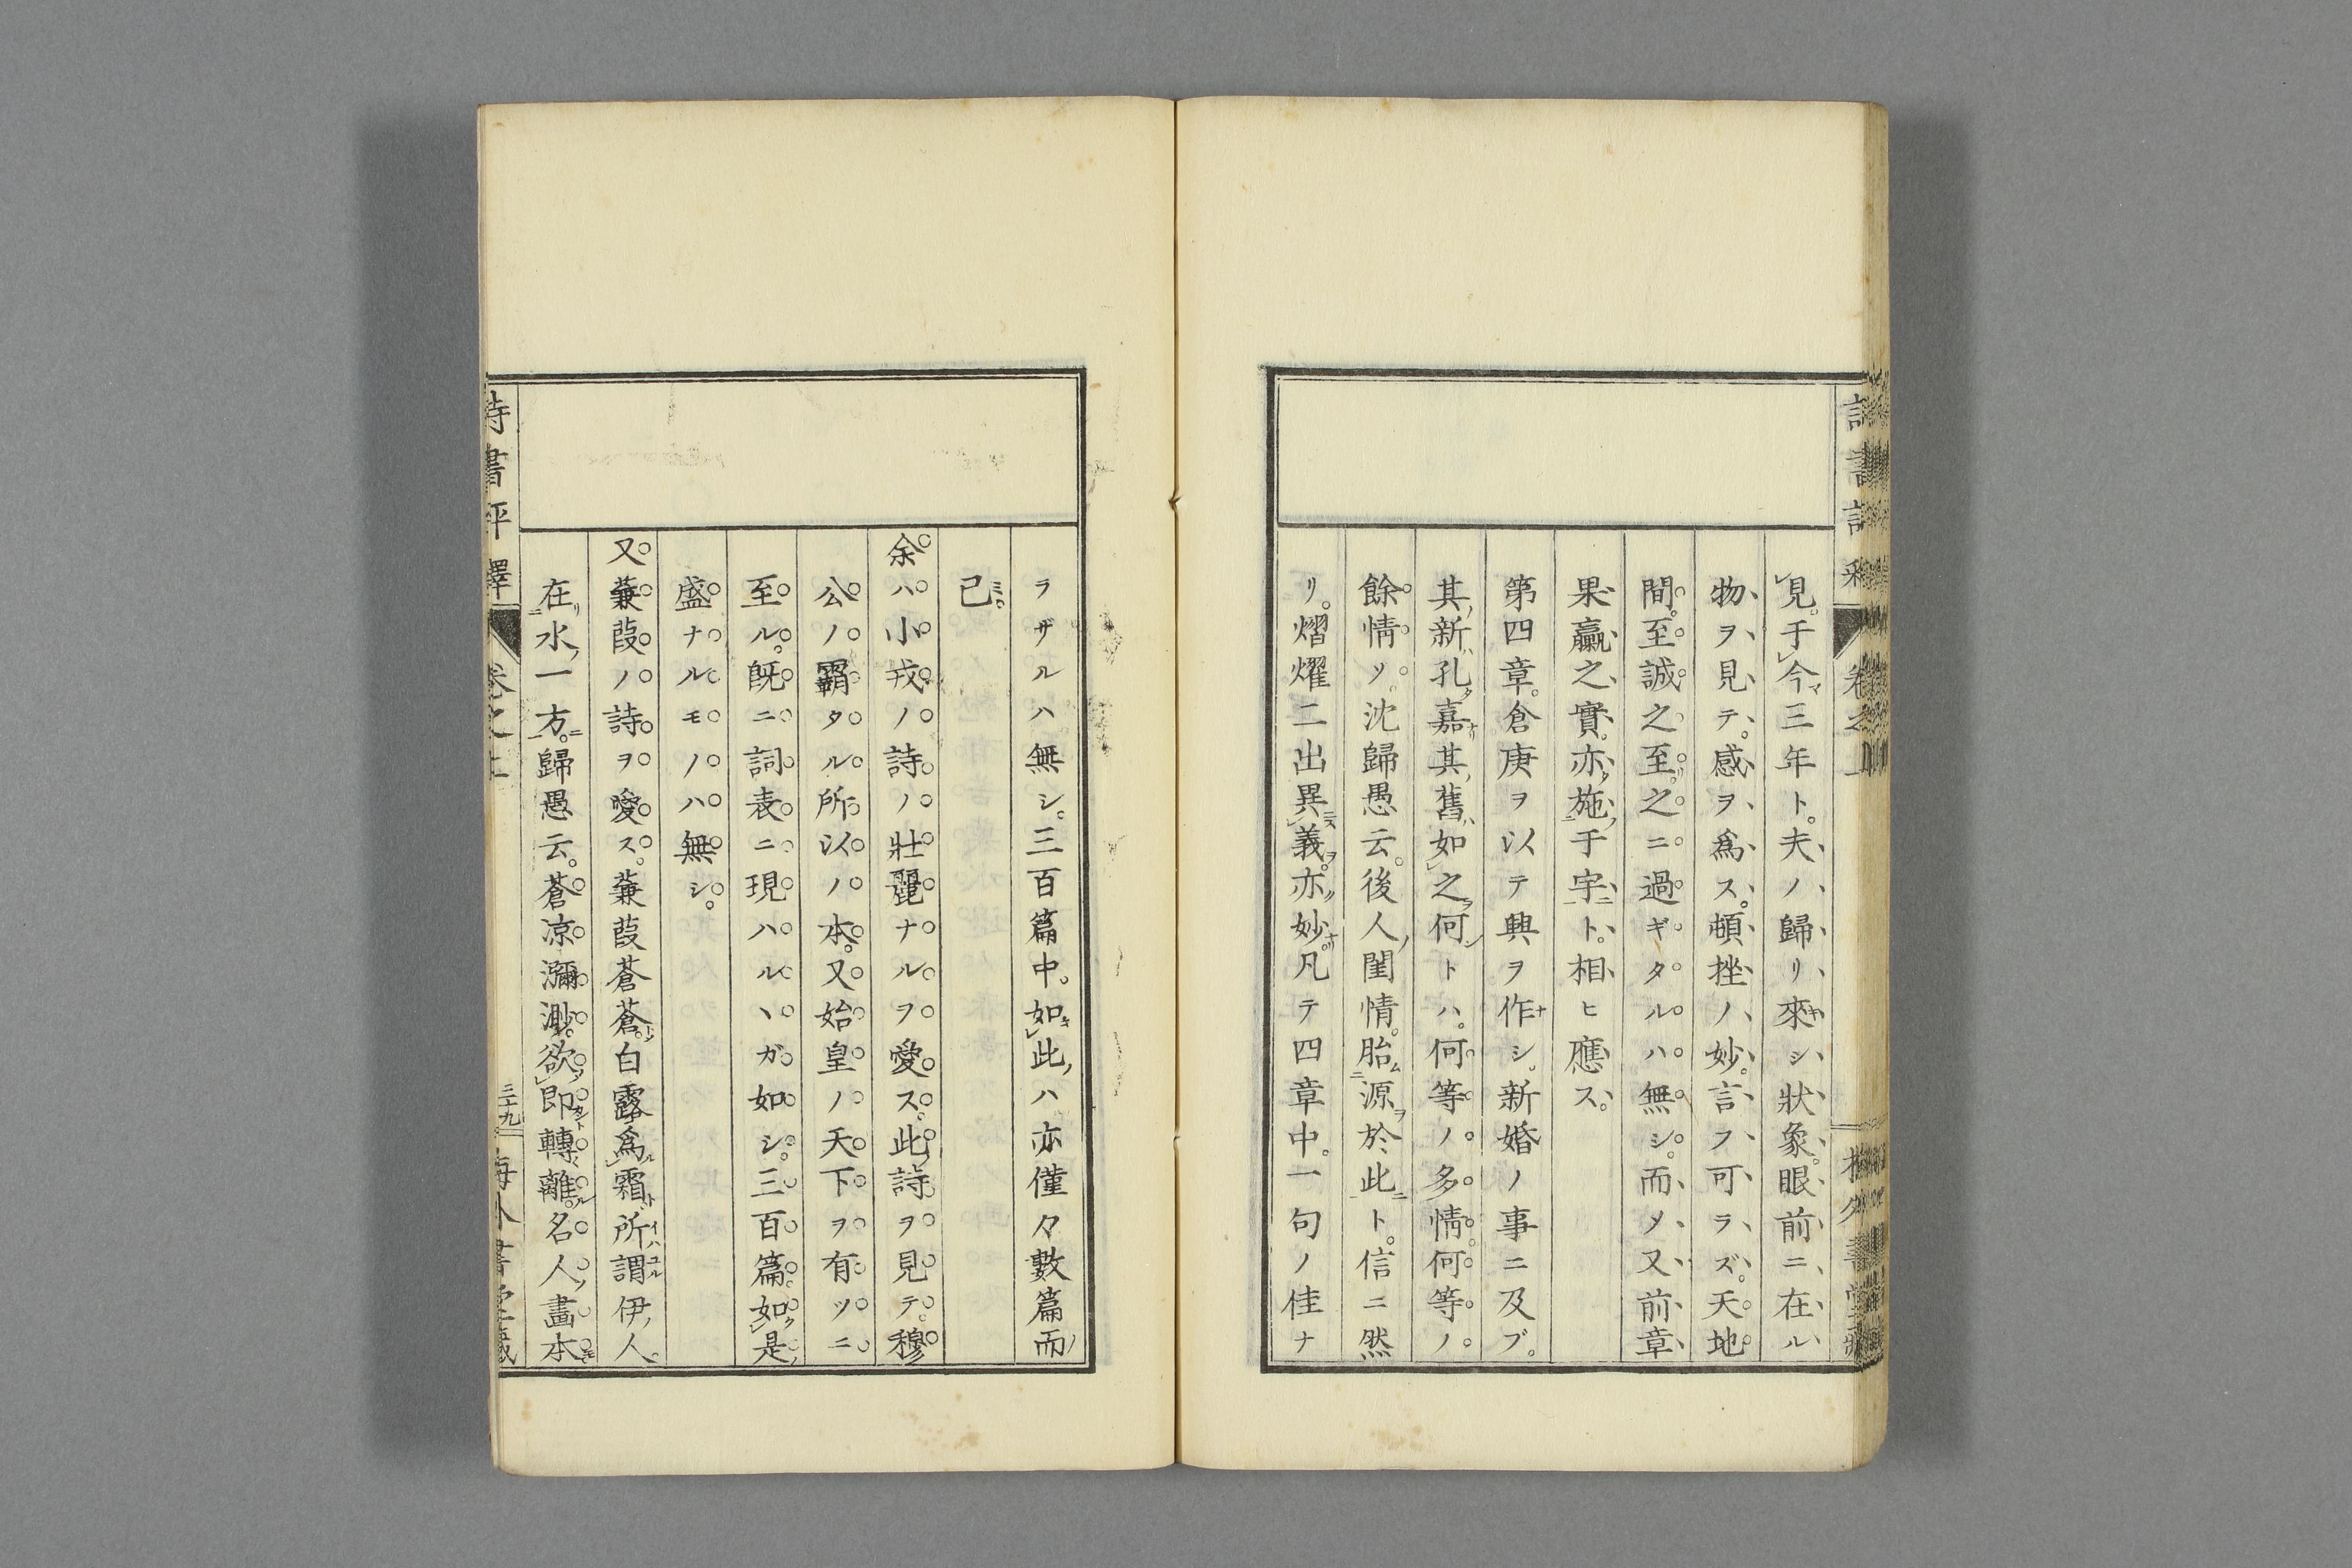 見。于今三年ト。夫ノ歸リ來シ狀象。眼前ニ在ル
物ヲ見テ。感ヲ爲ス。頓挫ノ妙。言フ可ラズ。天地
間。至誠之至。之ニ過ギタルハ無シ。而メ又前章
果臝之實。亦施于宇ト。相ヒ應ス。
第四章。倉庚ヲ以テ興ヲ作シ。新婚ノ事ニ及ブ。
其新孔嘉。其舊如之何トハ。何等ノ多情。何等ノ
餘情ソ。沈歸愚云。後人閨情。胎源於此ト。信ニ然
リ。熠燿二出異義。亦妙。凡テ四章中。一句ノ佳ナ
ラザルハ無シ。三百篇中。如此ハ亦僅々數篇而
已。
余ハ小戎ノ詩ノ壯麗ナルヲ愛ス。此詩ヲ見テ。穆
公ノ霸タル所以ノ本。又始皇ノ天下ヲ有ツニ
至ル。既ニ詞表ニ現ハルヽガ如シ。三百篇。如是
盛ナルモノハ無シ。
又蒹葭ノ詩ヲ愛ス。蒹葭蒼蒼。白露爲霜。所謂伊人。
在水一方。歸愚云。蒼凉瀰渺。欲即轉離。名人畫本
詩書評釋
卷之上
三十九